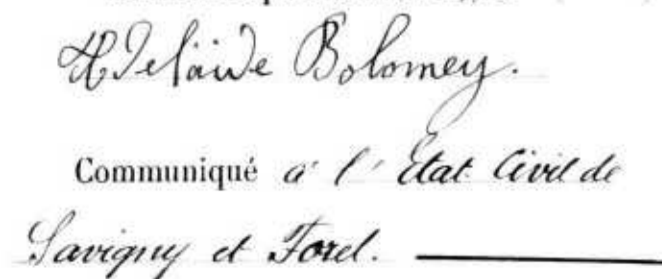 Adelaïde Bolomey.
Communiqué à l'État Civil de
Savigny et Forel.